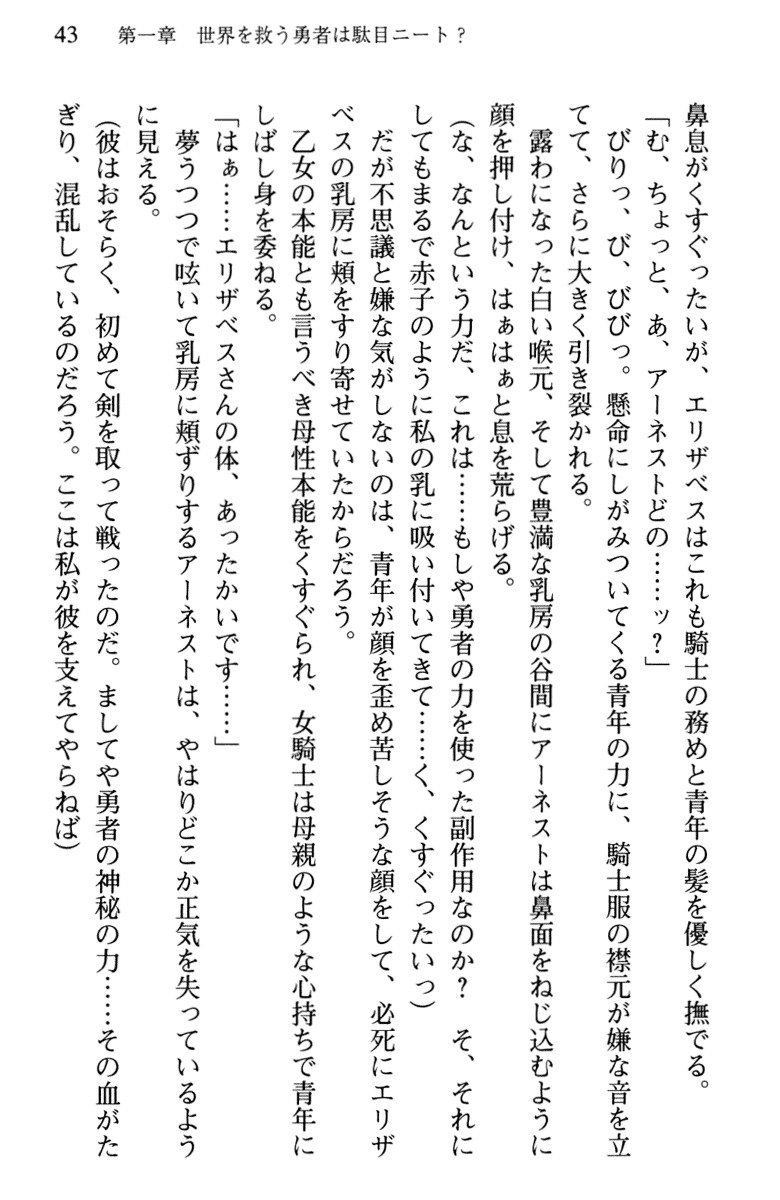 43　第一章　世界を救う勇者は駄目ニート？
鼻息がくすぐったいが、エリザベスはこれも騎士の務めと青年の髪を優しく撫でる。
「む、ちょっと、あ、アーネストどの……ッ？」
びりっ、び、びびっ。懸命にしがみついてくる青年の力に、騎士服の襟元が嫌な音を立
てて、さらに大きく引き裂かれる。
露わになった白い喉元、そして豊満な乳房の谷間にアーネストは鼻面をねじ込むように
顔を押し付け、はぁはぁと息を荒らげる。
（な、なんという力だ、これは……もしや勇者の力を使った副作用なのか？　そ、それに
してもまるで赤子のように私の乳に吸い付いてきて……く、くすぐったいっ）
だが不思議と嫌な気がしないのは、青年が顔を歪め苦しそうな顔をして、必死にエリザ
ベスの乳房に頬をすり寄せていたからだろう。
乙女の本能とも言うべき母性本能をくすぐられ、女騎士は母親のような心持ちで青年に
しばし身を委ねる。
「はぁ……エリザベスさんの体、あったかいです……」
夢うつつで呟いて乳房に頬ずりするアーネストは、やはりどこか正気を失っているよう
に見える。
（彼はおそらく、初めて剣を取って戦ったのだ。ましてや勇者の神秘の力……その血がた
ぎり、混乱しているのだろう。ここは私が彼を支えてやらねば）